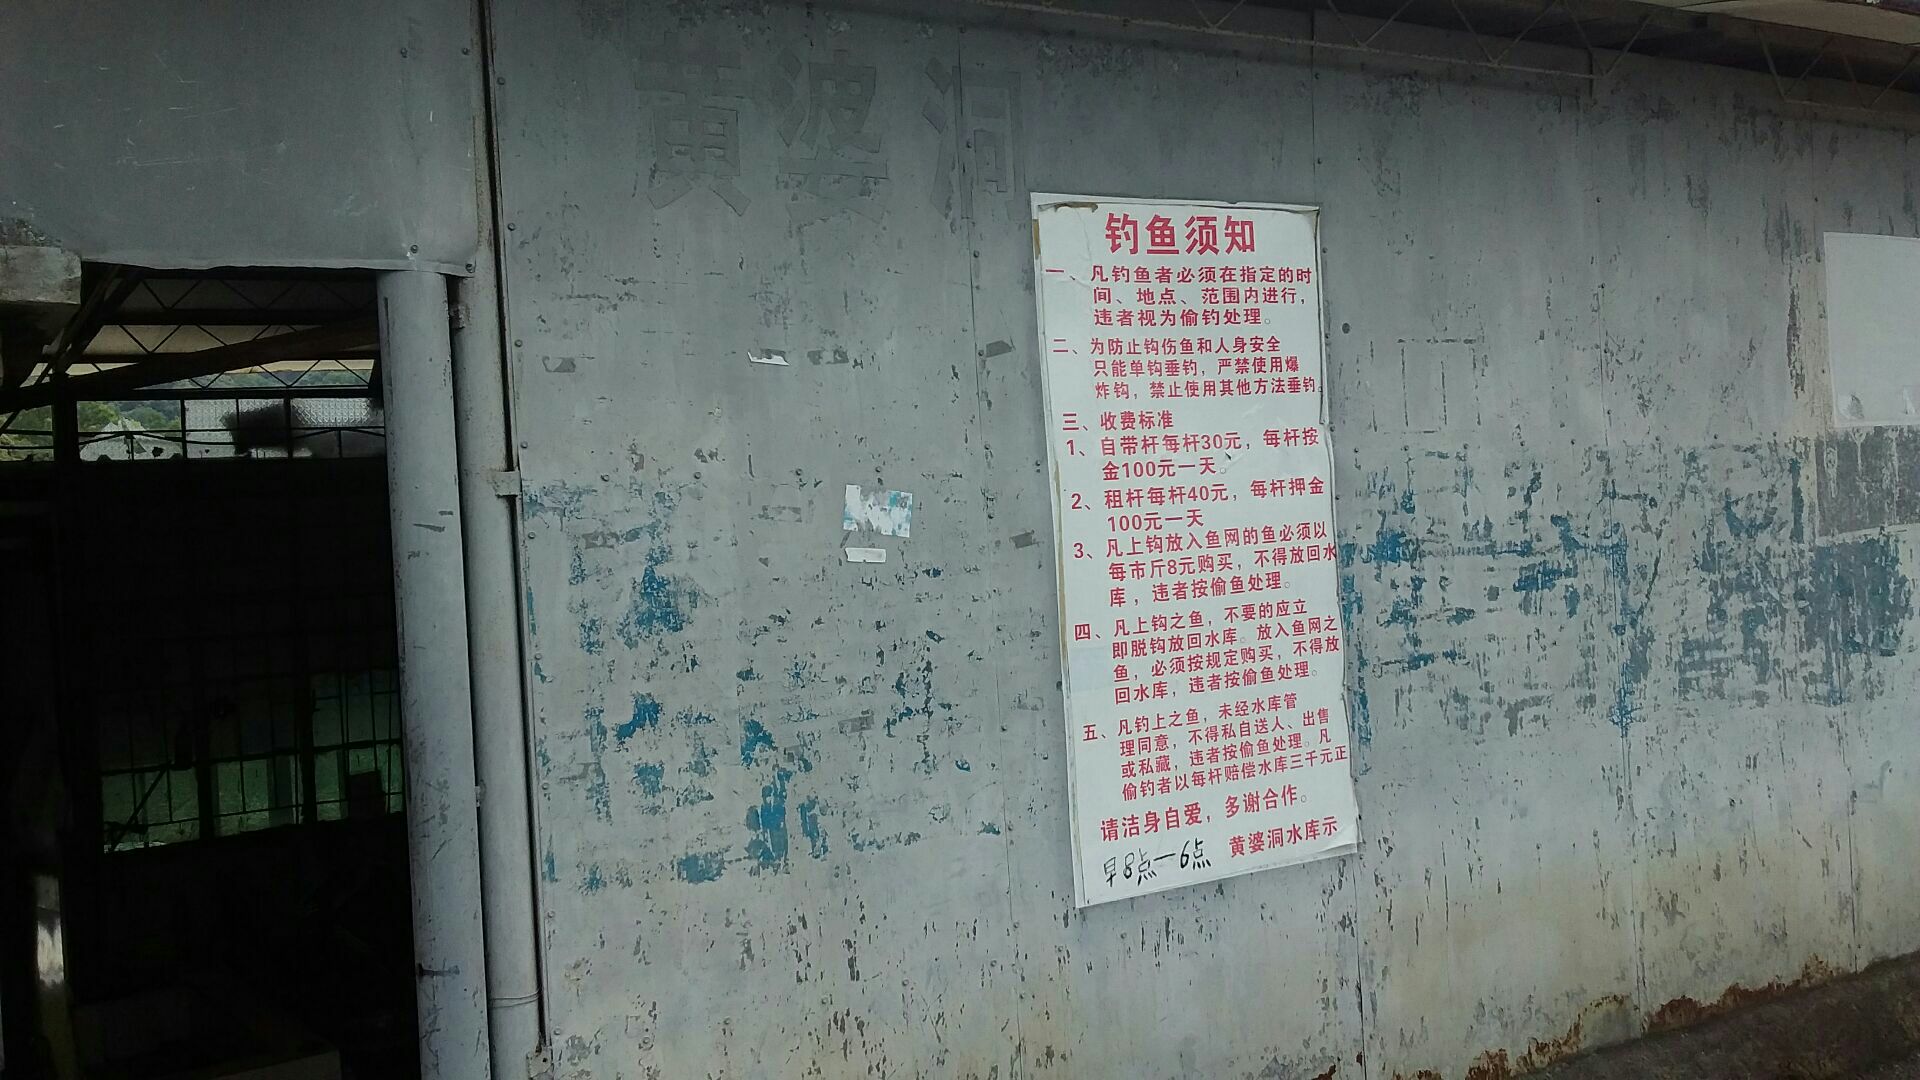 黄婆洞
钓鱼须知
一、凡钓鱼者必须在指定的时
间、地点、范围内进行，
违者视为偷钓处理。
二、为防止钩伤鱼和人身安全
只能单钩垂钓，严禁使用爆
炸钩，禁止使用其他方法垂钓。
三、收费标准
1、自带杆每杆30元，每杆按
金100元一天。
2、租杆每杆40元，每杆押金
100元一天
3、凡上钩放入鱼网的鱼必须以
每市斤8元购买，不得放回水
库，违者按偷鱼处理。
四、凡上钩之鱼，不要的应立
即脱钩放回水库。放入鱼网之
鱼，必须按规定购买，不得放
回水库，违者按偷鱼处理。
五、凡钓上之鱼，未经水库管
理同意，不得私自送人、出售
或私藏，违者按偷鱼处理。凡
偷钓者以每杆赔偿水库三千元正
请洁身自爱，多谢合作。
黄婆洞水库示
早8点一6点